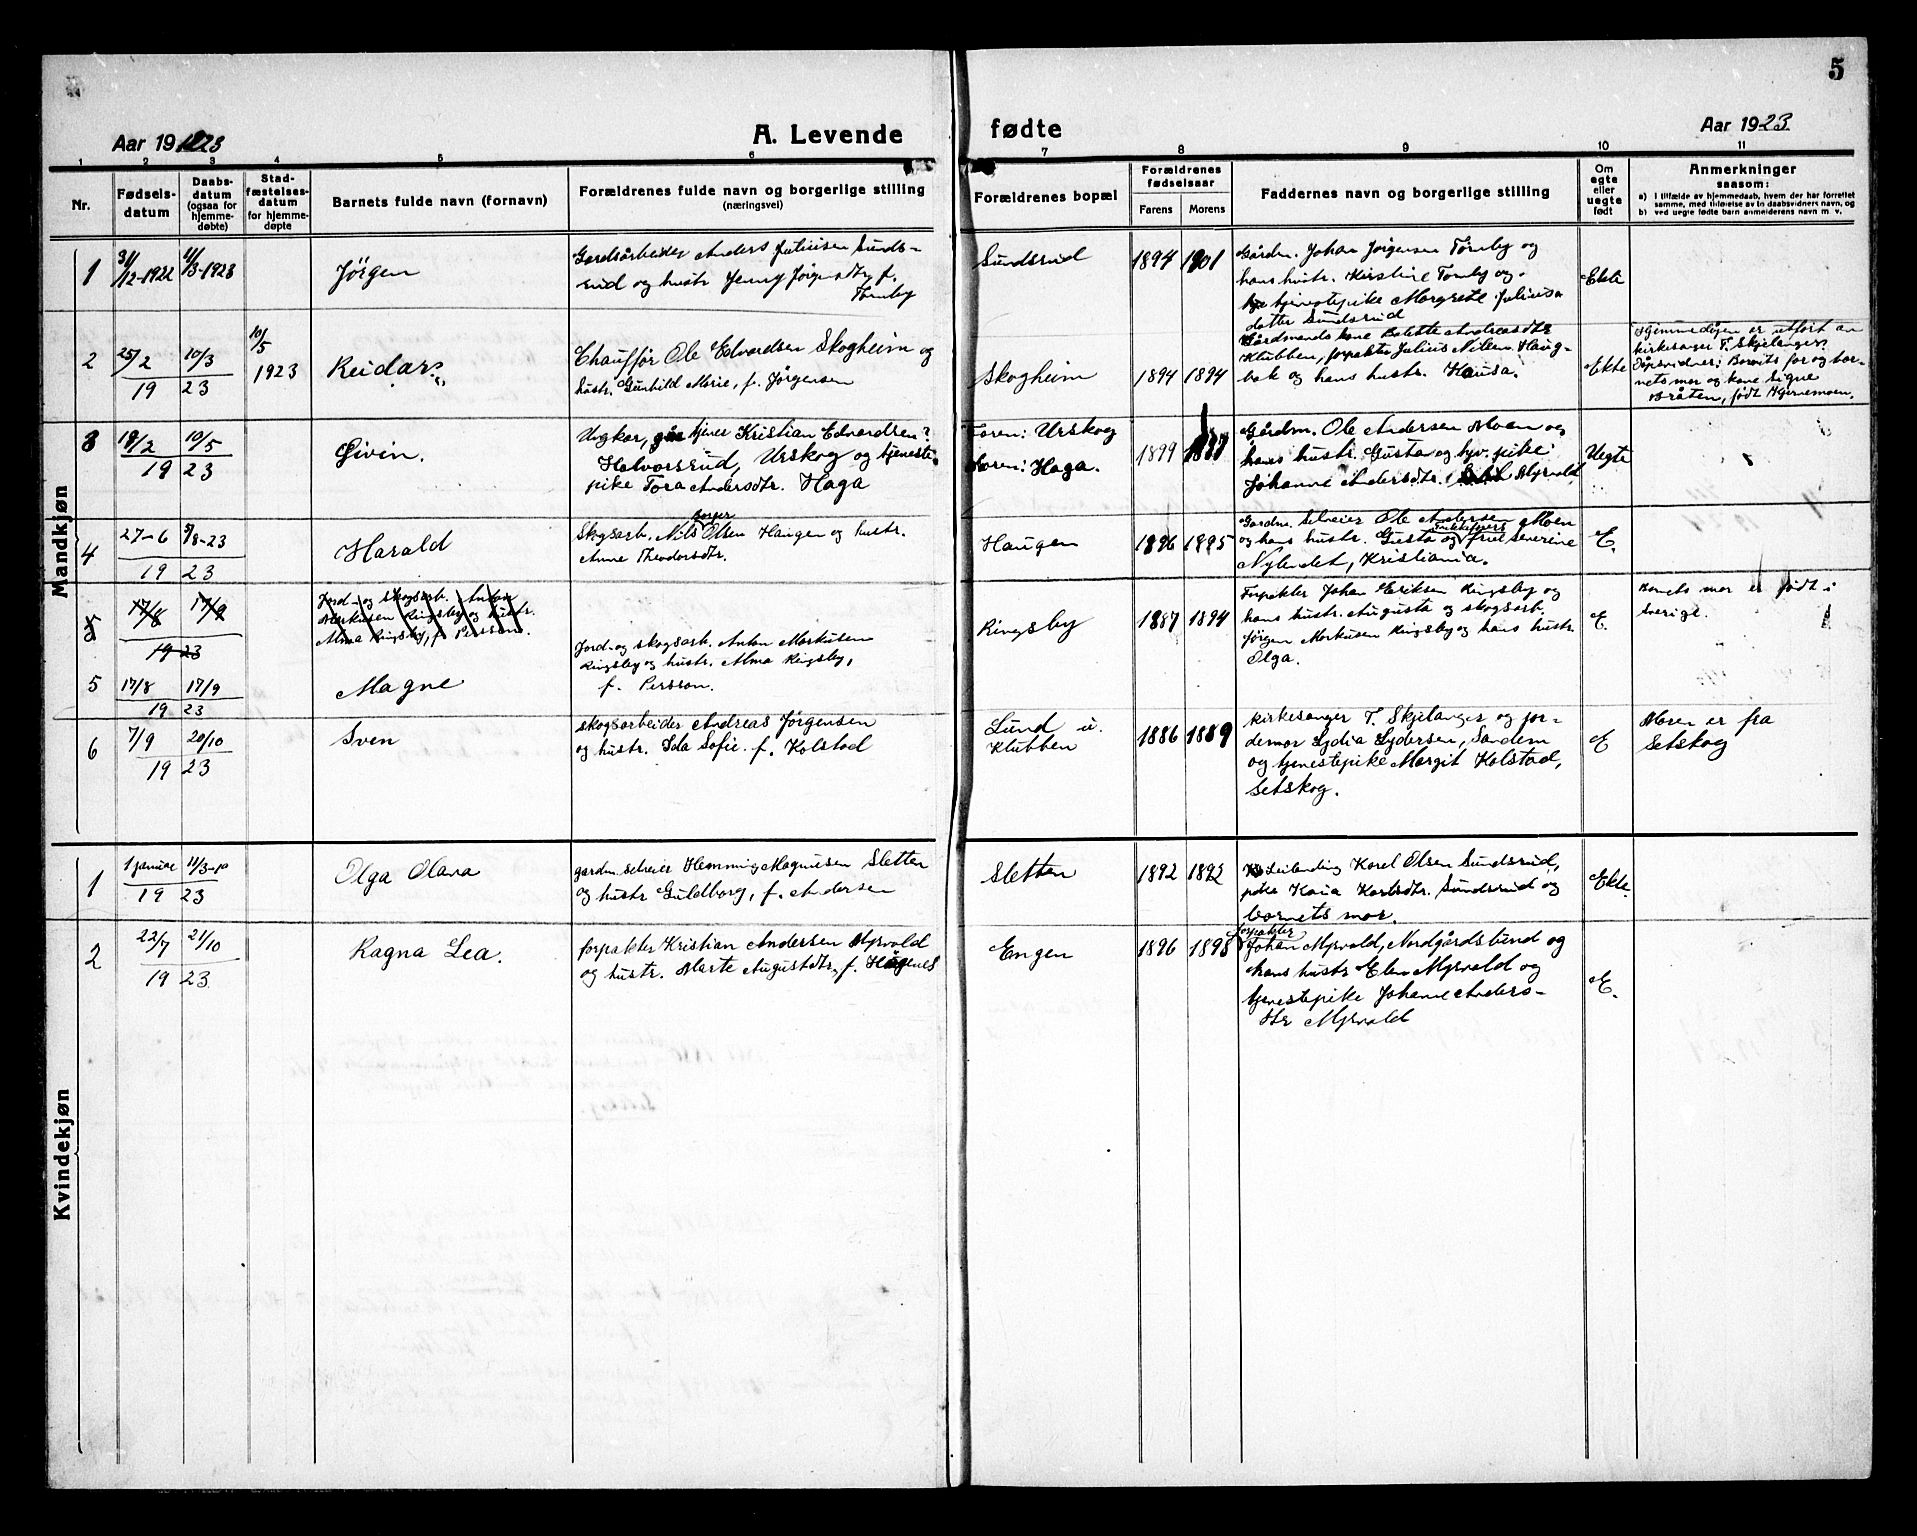 5
Aar 1923
A. Levende
fødte
Aar 1923
1 2 3 4 5 6 7 8 9 10 11
Nr.
Fødsels-
datum
Daabs-
datum
(ogsaa for
hjemme-
døbte)
Stad-
fæstelses-
datum
for hjemme-
døpte
Barnets fulde navn (fornavn)
Forældrenes fulde navn og borgerlige stilling
(næringsvei)
Forældrenes bopæl
Forældrenes
fødselsaar
Farens Morens
Faddernes navn og borgerlige stilling
Om
egte
eller
uegte
født
Anmerkninger
saasom:
a) I tilfælde av hjemmedaab, hvem der har forrettet
samme, med tilføielse av to daabsvidners navn, og
b) ved uegte fødte barn anmelderens navn m. v.
Mandkjøn
1
31/12-1922
11/3-1923
Jørgen
Gardsarbeider Anders Juliusen Sunds-
rud og hustr. Jenny Jørgensdtr. f.
Tørnby
Sundsrud
1894 1901
Gårdm. Johan Jørgensen Tørnby og
hans hustr. Kirstine Tørnby og
tjenestepike Margrete Julius-
datter Sundsrud
Ekte
2
25/2
19
10/3
23
10/5
1923
Reidar
Chauffør Ole Edvardsen Skogheim og
hustr. Gunhild Marie, f. Jørgensen
Skogheim
1894 1894
Gårdmands kone Bolette Andreasdtr.
Klubben, forpakter Julius Nilsen Haug-
bak og hans hustr. Hausa.
Ekte
Hjemmedåpen er utført av
kirkesanger T. Skjelanger.
Dåpsvidner: Barnets far og bar-
nets mor og kone Signe
Bråten, født Hjernemoen.
3
19/2
19
10/5
23
Øivin.
Ungkar, tjener Kristian Edvardsen
Halvorsrud, Urskog og tjeneste-
pike Tora Andersdtr. Haga
Faren: Urskog
Moren: Haga.
1899
Gårdm. Ole Andersen Moen og
hans hustr. Gusta og tjen. pike
Johanne Andersdtr. Myrvold
Uegte
4
27-6
19
5/8-23
23
Harald
Skogsarb. Nils Borger Olsen Haugen og hustr.
Anne Theodorsdtr.
Haugen
1896 1895
Gardm. Selveier Ole Andersen Moen
og hans hustr. Gusta og frøken Severine
Nylendet, Kristiania.
E.
5
17/8
19
17/9
23
Jord- og skogsarb. Anton
Markusen Ringsby og hustr.
Alma Ringsby, f. Persson.
Ringsby
1887 1894
Forpakter Johan Eriksen Ringsby og
hans hustr. Augusta og skogsarb.
Jørgen Markusen Ringsby og hans hustr.
Olga.
E.
Barnets mor er født i
Sverige.
5
17/8
19
17/9
23
Magne
Jord- og skogsarb. Anton Markusen
Ringsby og hustr. Alma Ringsby,
f. Persson.
6
7/9
19
20/10
23
Sven
skogsarbeider Andreas Jørgensen
og hustr. Ida Sofie f. Kolstad
Lund u.
Klubben
1886 1889
kirkesanger T. Skjelanger og jor-
demor Lydia Lydersen, Sandem
og tjenestepike Margit Kolstad,
Setskog.
E
Moren er fra
Setskog
Kvindekjøn
1
1 januar
19
11/3
23
Olga Olava
gardm. selveier Hemming Magnusen Sletten
og hustr. Guldborg, f. Andersen
Sletten
1892 1892
Leilending Karel Olsen Sundsrud,
pike Kaia Karlsdtr. Sundsrud og
barnets mor.
Ekte.
2
22/7
19
21/10
23
Ragna Lea.
forpakter Kristian Andersen Myrvold
og hustr. Marte Augustdtr. f. Hagenes
Engen
1896 1898
forpakter
Johan Myrvold, Nordgårdslund og
hans hustr. Elen Myrvold og
tjenestepike Johanne Anders-
dtr Myrvold
E.